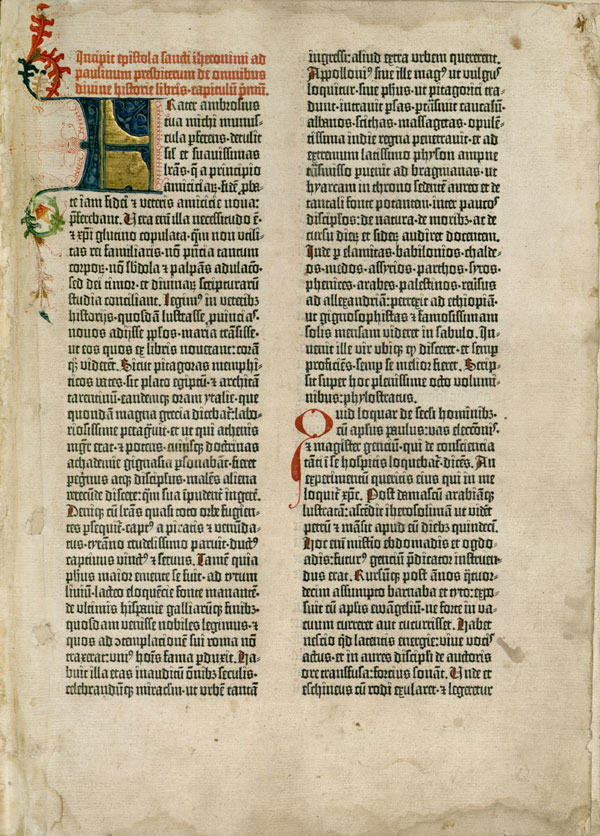 Incipit epistola sancti iheronimi ad
paulinum presbiterum de omnibus
divine historie libris·capitulū pmū.
Frater ambrosius
tua michi munus-
cula pferens·detulit
sil' et suavissimas
lrās·q̄ a principio
amiciciaꝝ·fidē pba-
te iam fidei ⁊ veteris amicicie nova:
pferebant. Vera eni illa necessitudo ē·
⁊ xpi glutino copulata·qm non vtili-
tas rei familiaris·nō pntia tantum
corporꝝ·nō sbdola ⁊ palpās adulacō·
sed dei timor·et divinaꝝ scripturarū
studia conciliant. Legimꝰ in veteribꝫ
historijs·quosdā lustrasse pvincias·
novos adijsse pplos·maria trāsisse·
ut eos quos ex libris noverant: corā
qꝫ viderēt. Sicut pitagoras memphi-
ticos vates·sic plato egiptū·⁊ architā
tarentinū·eandemqꝫ oram ytalie·que
quondā magna grecia dicebat̄·labo-
riosissime peragvit·et ut qui athenis
mgr̄ erat·⁊ potens·cuiusqꝫ doctrinas
achademie gignasia psonabāt·fieret
peginus atqꝫ discipulus·malēs aliena
verecūde discere: qm sua īpudent̄ ingerē.
Deniqꝫ cū lrās quasi toto orbe fugien-
tes psequit̄·captꝰ a piratis ⁊ venūda-
tus·tyrāno crudelissimo paruit·ductꝰ
captivus vinctꝰ ⁊ servus. Tamē quia
phus maior emente se fuit·ad tytum
liviū·lacteo eloquēcie fonte manantē·
de vltimis hispanie galliarūqꝫ finibꝫ·
quosdam venisse nobiles legimus·⁊
quos ad ɔtemplationē sui roma nō
traxerat: vniꝰ hoīs fama pduxit. Ha-
buit illa etas inauditū oīnibꝫ seculis·
celebrandūqꝫ miraclm·ut urbē tantā
ingressi: aliud extra urbem quererent.
Appollonius sive ille magꝰ ut vulgus
loquitur·sive phus·ut pitagorici tra-
dunt·intravit psas·ptrāsivit caucasū·
albanos·scithas·massagetas·opulē-
tissima indie regna penetravit·et ad
extremum latissimo physon ampne
trāsmisso pvenit ad bragmanas·ut
hyarcam in throno sedentē aureo et de
tantali fonte potantem·inter paucos
discipulos: de natura·de moribꝫ·ac de
cursu dieꝝ et sideꝝ audiret docentem.
Inde p elamitas·babilonios·chalde-
os·medos·assyrios·parthos·syros·
phenices·arabes·palestinos·reversus
ad allexandriā: perrexit ad ethiopiā·
ut gignosophistas ⁊ famosissimam
solis mensam videret in sabulo. In-
venit ille vir ubiqꝫ qd disceret·et semp
proficiēs·semp se melior fieret. Scrip-
sit super hoc plenissime octo volumi-
nibus: phylostratus.
Quid loquar de secli hominibꝫ·
cū aplus paulus: vas electionis·
⁊ magister gentiū·qui de consciencia
tāti ī se hospitis loquebat̄·dicēs. An
experimentū queritis eius qui in me
loquit̄ xpc. Post damascū arabiāqꝫ
lustratā: ascēdit iherosolimā ut vidēt
petrū ⁊ māsit apud eū diebꝫ quindeci.
Hoc eni misterio ebdomadis et ogdo-
adis: futurꝰ gentiū pdicator instruen-
dus erat. Rursūqꝫ post ānos qtuor-
decim assumpto barnaba et tyto: expo-
suit cū aplis ewāgeliū·ne forte in va-
cuum curreret aut cucurrisset. Habet
nescio qd latentis energie: vive vocis
actus·et in aures discipli de auctoris
ore transfusa: fortius sonat. Vnde et
eschineus cū rodi exularet·⁊ legeretur